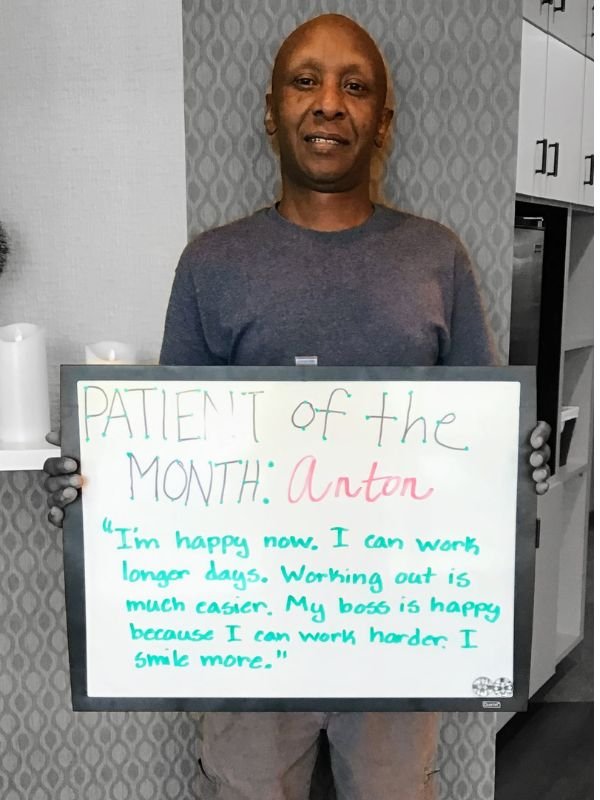 PATIENT of the
MONTH: Anton
"I'm happy now. I can work
longer days. Working out is
much easier. My boss is happy
because I can work harder. I
smile more."
Quartet